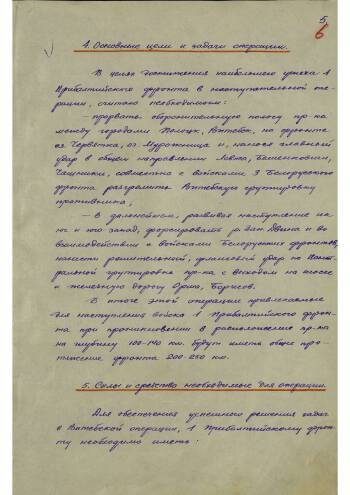 5
6
4. Основные цели и задачи операции.
В целях достижения наибольшего успеха 1
Прибалтийского фронта в наступательной опе-
рации, считаю необходимым:
- прорвать оборонительную полосу пр-ка
между городами Полоцк, Витебск, на фронте
оз. Червятка, оз. и, нанося главный
удар в общем направлении Бешенковичи,
Чашники, совместно с войсками 3 Белорусского
фронта разгромить Витебскую группировку
противника;
- в дальнейшем, развивая наступление на
юг и юго запад, форсировать р. Зап. Двина и во
взаимодействии с войсками Белорусских фронтов,
нанести решительный, фланговый удар по Цент-
ральной группировке пр-ка с выходом на шоссе
и железную дорогу Орша, Борисов.
В итоге этой операции привлекаемые
для наступления войска 1 Прибалтийского фрон-
та при проникновении в расположение пр-ка
на глубину 100-140 км. будут иметь общее про-
тяжение фронта 200-250 км.
5. Силы и средства необходимые для операции.
Для обеспечения успешного решения задач
в Витебской операции, 1 Прибалтийскому фрон-
ту необходимо иметь: